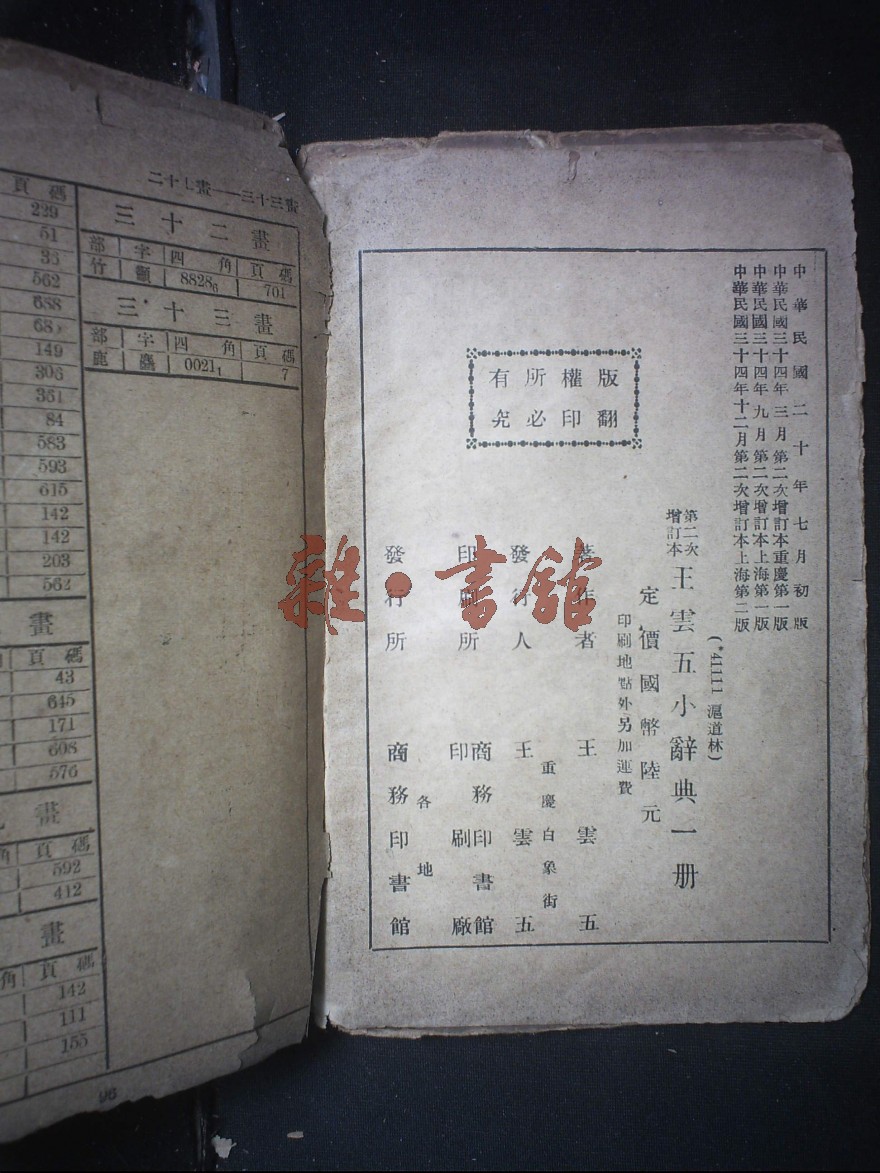 中華民國二十年七月初版
中華民國三十四年三月第二次增訂本重慶第一版
中華民國三十四年九月第二次增訂本上海第一版
中華民國三十四年十二月第二次增訂本上海第二版
(*41111 滬道林)
第二次增訂本 王雲五小辭典一册
定價國幣陸元
印刷地點外另加運費
版權所有
翻印必究
著作者 王雲五
重慶白象街
發行人 王雲五
印刷所 商務印書館印刷廠
各地
發行所 商務印書館
雜·書舘
二十七畫——三十三畫
三十二畫
部 字 四角 頁碼
竹 籲 8828₆ 701
三十三畫
部 字 四角 頁碼
鹿 麤 0021₁ 7
頁碼
229
51
35
562
688
149
306
361
84
583
593
615
142
142
203
562
畫
頁碼
43
645
171
608
576
畫
角 頁碼
592
412
畫
角 頁碼
142
111
155
96